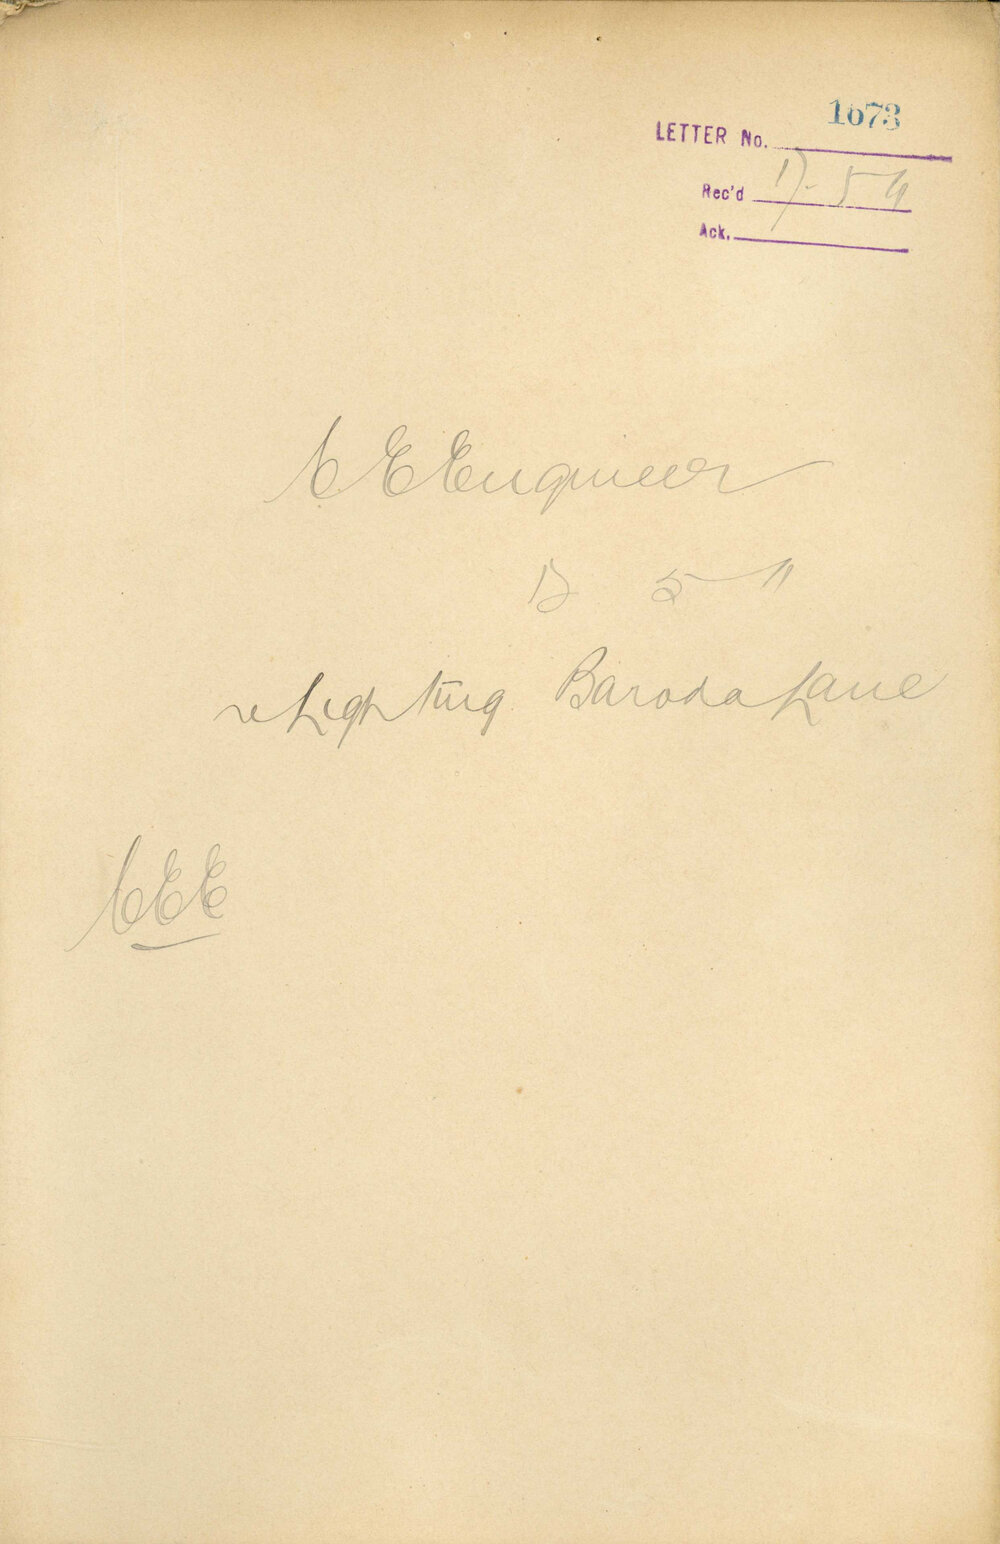 1673
LETTER No.
Rec'd 17. 5 11
Ack.
C E Engineer
15 5 11
re Lighting Baroda Lane
CEE